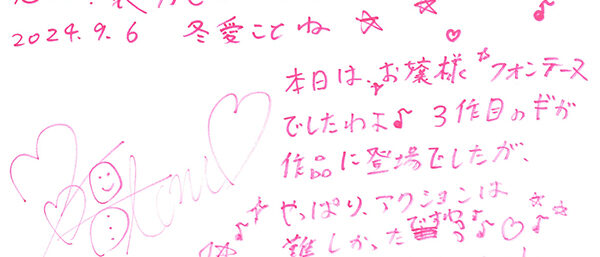 2024.9.6 冬愛ことね ☆
本日は、お嬢様 フォンテーヌ
でしたわよ♪ 3作目のギガ
作品に登場でしたが、
やっぱり、アクションは
難しかったですわっ